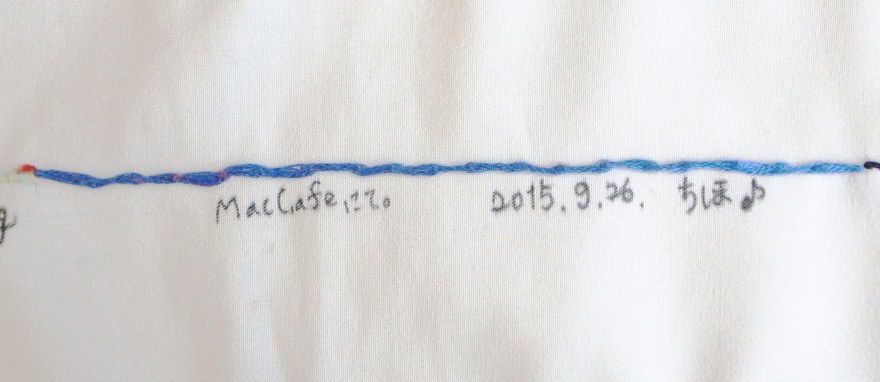 MacCafeにて。 2015.9.26. ちほ♪